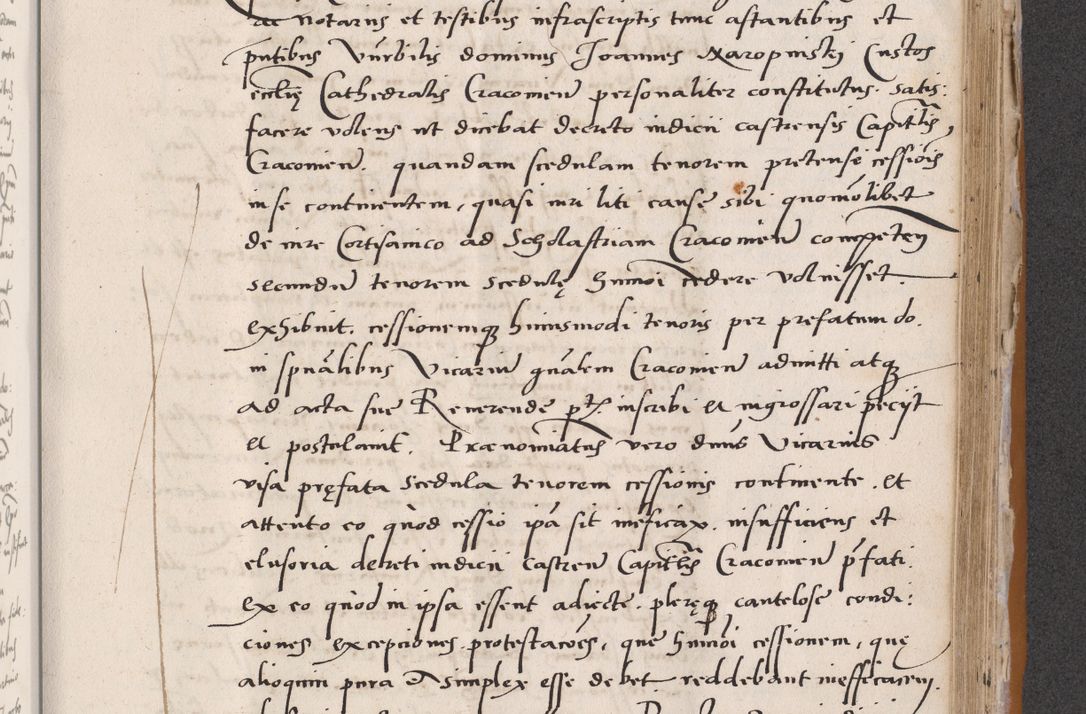 ac notarius et testibus infrascriptis tunc astantibus et
pntibus Vnrbilis dominus Joannes Naropinskj Custos
ecclię Cathedralis Cracouien personaliter constitutus. Satis:
facere volens ut dicebat decreto iudicii castrensis Capitlis,
Cracouien. quandam scedulam tenorem pretense cessiois
in se continentem, quasi iuri liti cause sibi quomolibet
de iure Cortisanico ad Scholastriam Cracouien competen
secundu tenorem scedulę humoi cedere voluisset.
exhibuit. cessionemque huiusmodi tenoris per prefatum do.
in spualibus Vicariu gnalem Cracouien admitti atque
ad acta sue Reuerende pt. inscribi et ingrossari peciit
et postulauit. Prænomiatus vero dnus Vicarius
visa pręfata scedula tenorem cessionis continente. et
attento eo quod cessio ipa sit inefficax. insufficiens et
elusoria decreti iudicii castren Capitlis Cracouien pfati.
ex eo quod in ipsa essent adiecte. pleręque cautelose condi:
ciones exceptiones protestacoes, que humoi cessionem, quę
alioquin pura et simplex esse debet reddebant inefficacem.